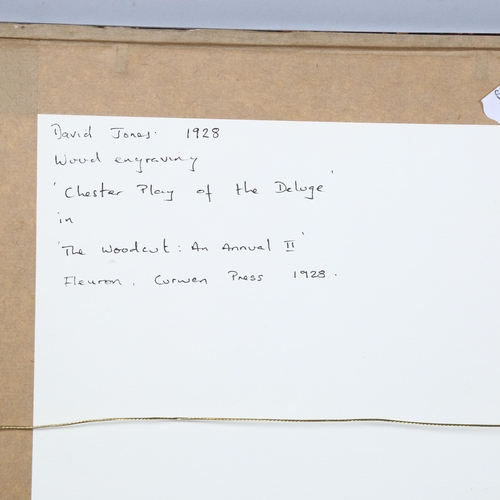 David Jones. 1928
Wood engraving
'Chester Play of the Deluge'
in
'The Woodcut: An Annual II'
Fleuron. Curwen Press 1928.